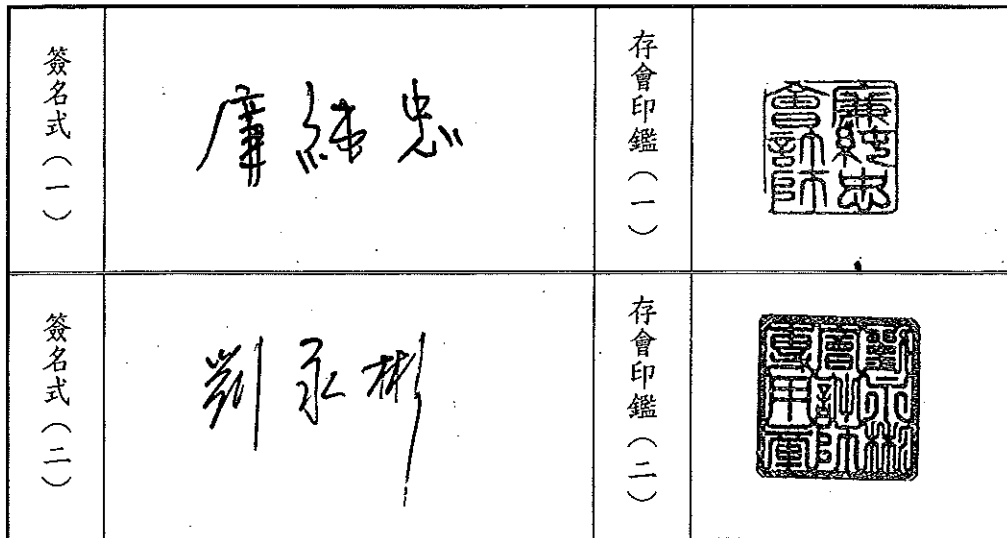 簽名式（一）
純忠
存會印鑑（一）
純忠
會計師
簽名式（二）
劉永彬
存會印鑑（二）
劉永彬
會計師
專用章